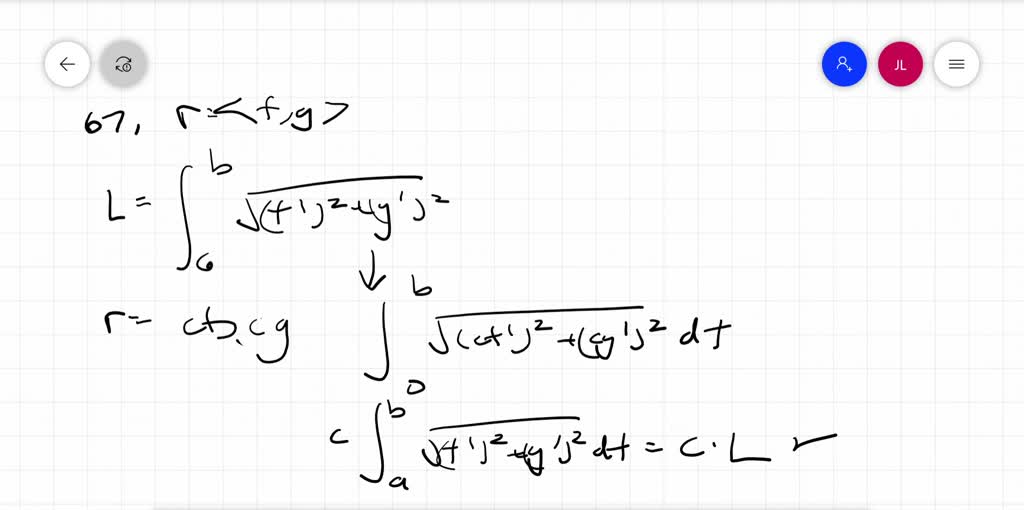 JL
67, r=<f,g>
L = ∫_a^b √(f')²+(g')²
↓
r= cf, cg ∫_0^b √(cf')²+(cg')² dt
c ∫_a^b √(f')²+(g')² dt = c·L ✓